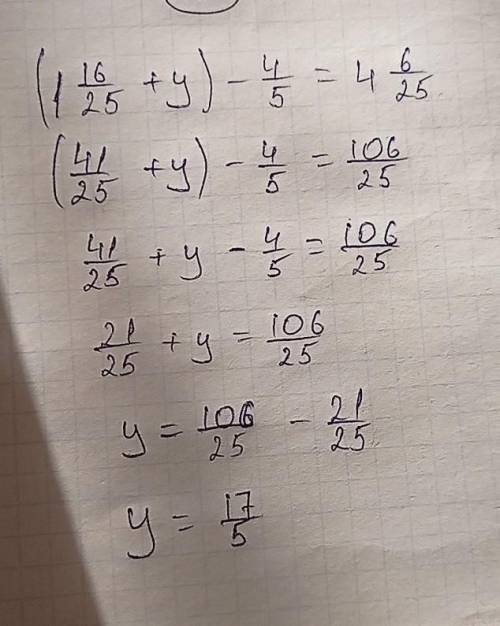 (1 16/25 + y) - 4/5 = 4 6/25
(41/25 + y) - 4/5 = 106/25
41/25 + y - 4/5 = 106/25
21/25 + y = 106/25
y = 106/25 - 21/25
y = 17/5